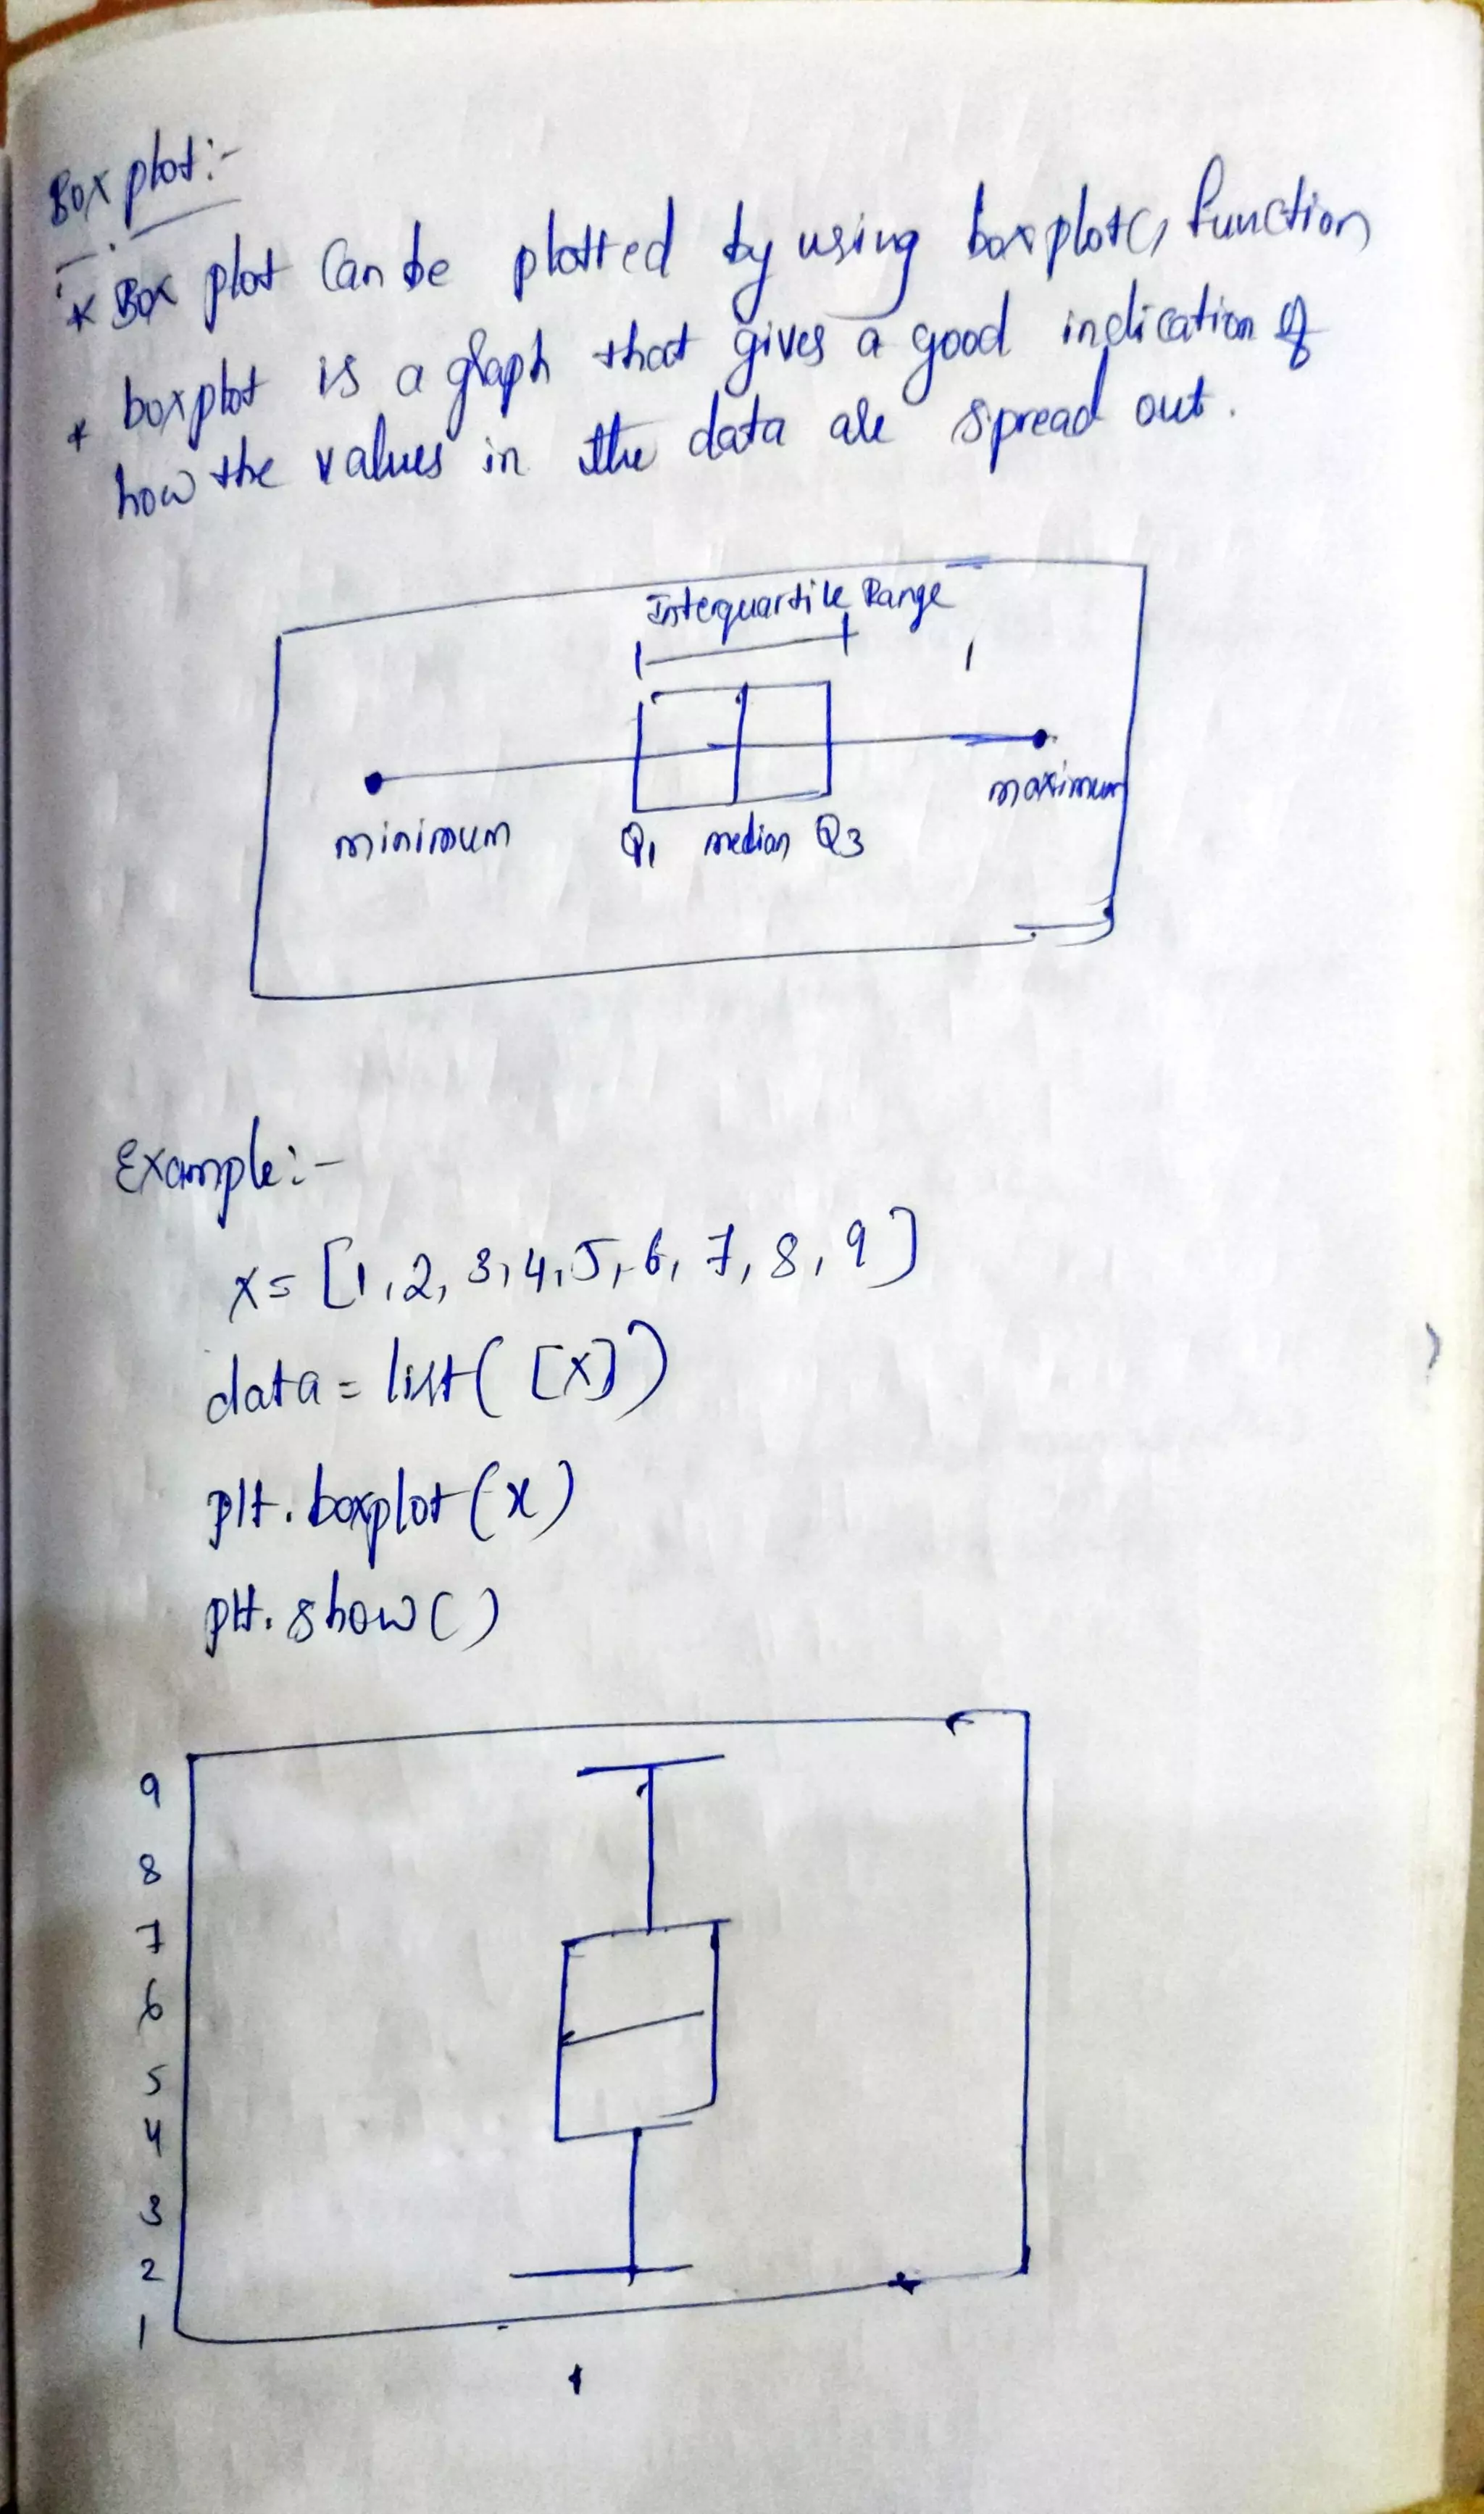 Box plot:-
* Box plot can be plotted by using boxplot() function
* boxplot is a graph that gives a good indication of
how the values in the data are spread out.
Interquartile Range
minimum Q1 median Q3 maximum
Example:-
x= [1,2,3,4,5,6,7,8,9]
data = list([x])
plt.boxplot(x)
plt.show()
9
8
7
6
5
4
3
2
1
1